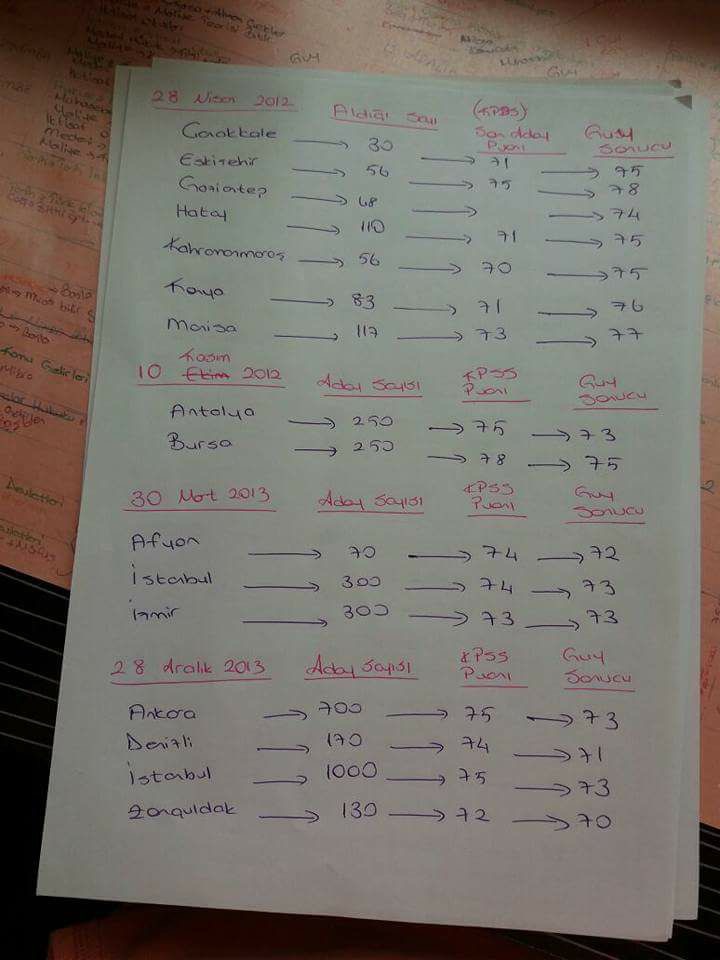 28 Nisan 2012 Aldığı Sayı (KPSS) Son Aday Puanı Guy Sonucu
Çanakkale → 30 → 71 → 75
Eskişehir → 56 → 75 → 78
Gaziantep → 68 → → 74
Hatay → 110 → 71 → 75
Kahramanmaraş → 56 → 70 → 75
Konya → 83 → 71 → 76
Manisa → 117 → 73 → 77
10 Kasım Ekim 2012 Aday Sayısı KPSS Puanı Guy Sonucu
Antalya → 250 → 75 → 73
Bursa → 250 → 78 → 75
30 Mart 2013 Aday Sayısı KPSS Puanı Guy Sonucu
Afyon → 70 → 74 → 72
İstanbul → 300 → 74 → 73
İzmir → 300 → 73 → 73
28 Aralık 2013 Aday Sayısı KPSS Puanı Guy Sonucu
Ankara → 700 → 75 → 73
Denizli → 170 → 74 → 71
İstanbul → 1000 → 75 → 73
Zonguldak → 130 → 72 → 70